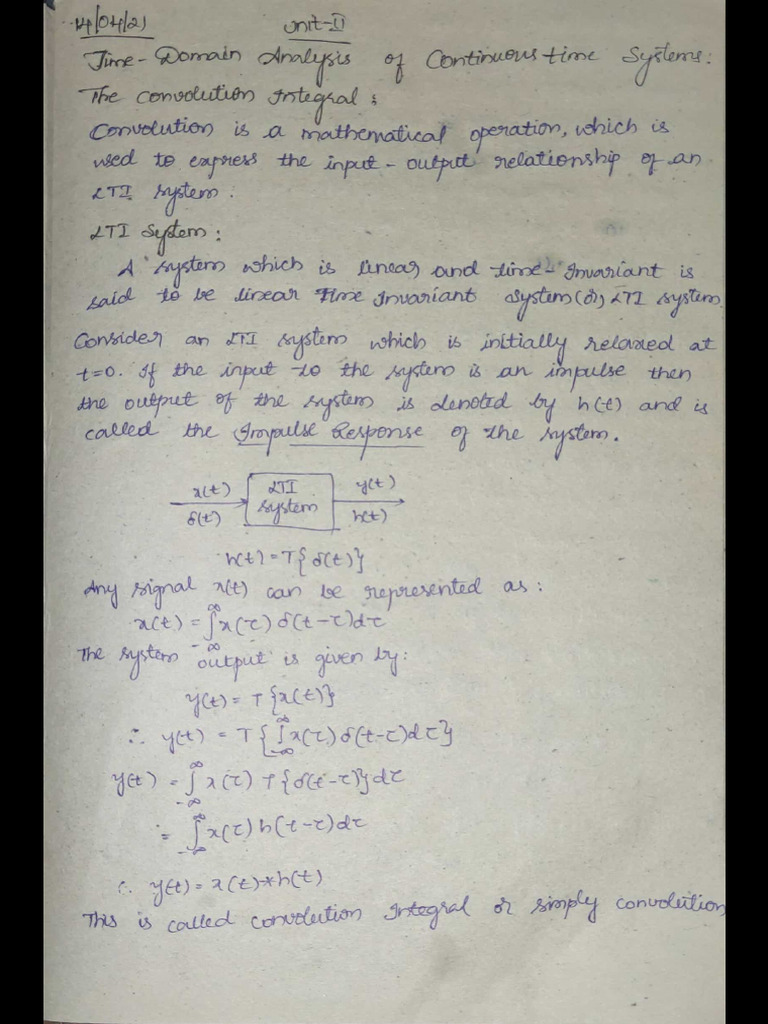 14/04/21 Unit-II
Time-Domain Analysis of Continuous time Systems:
The Convolution Integral:
Convolution is a mathematical operation, which is
used to express the input-output relationship of an
LTI system.
LTI System:
A system which is linear and time-Invariant is
said to be linear Time Invariant system (or) LTI system
Consider an LTI system which is initially relaxed at
t=0. If the input to the system is an impulse then
the output of the system is denoted by h(t) and is
called the Impulse Response of the system.
x(t) LTI y(t)
δ(t) system h(t)
h(t) = T{δ(t)}
Any signal x(t) can be represented as:
x(t) = ∫_{-∞}^{∞} x(τ) δ(t-τ)dτ
The system output is given by:
y(t) = T{x(t)}
∴ y(t) = T{∫_{-∞}^{∞} x(τ) δ(t-τ)dτ}
y(t) = ∫_{-∞}^{∞} x(τ) T{δ(t-τ)}dτ
= ∫_{-∞}^{∞} x(τ) h(t-τ)dτ
∴ y(t) = x(t)*h(t)
This is called convolution Integral or simply convolution